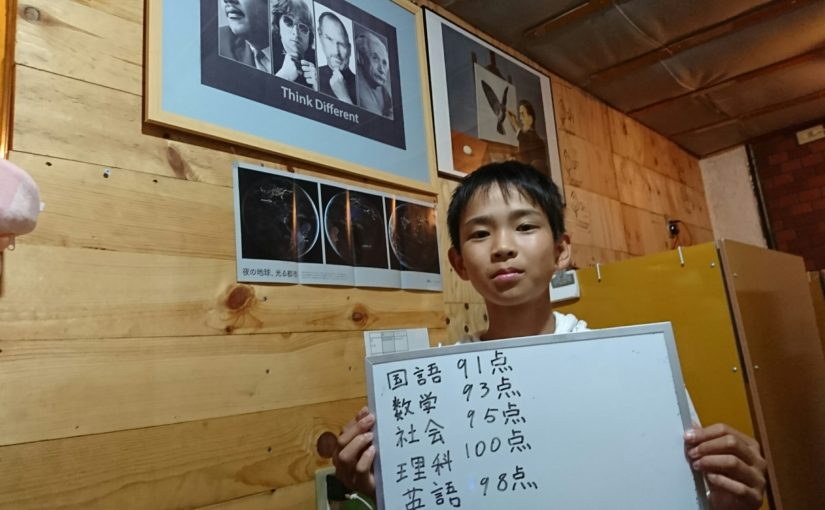 Think Different
夜の地球、光る都市
国語 91点
数学 93点
社会 95点
理科 100点
英語 98点